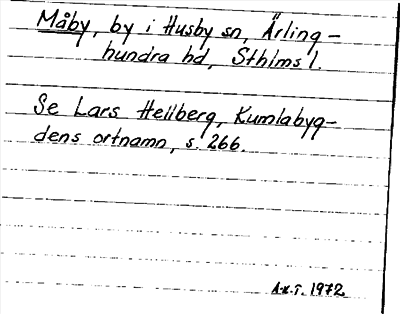 Måby, by i Husby sn, Ärling-
hundra hd, Sthlms l.
Se Lars Hellberg, Kumlabyg-
dens ortnamn, s. 266.
A.K.T. 1972